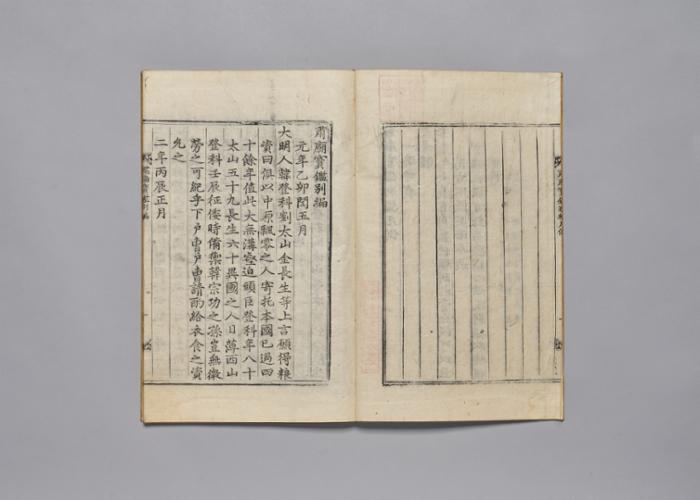 肅廟寶鑑別編
元年乙卯閏五月
大明人韓登科劉太山金長生等上言願得粮
資曰俱以中原飄零之人寄托本國已過四
十餘年值此大無溝壑迫頭臣登科年八十
太山五十九長生六十異國之人日薄西山
登科壬辰征倭時備禦韓宗功之孫豈無微
勞之可紀乎下戶曹戶曹請酌給衣食之資
允之
二年丙辰正月